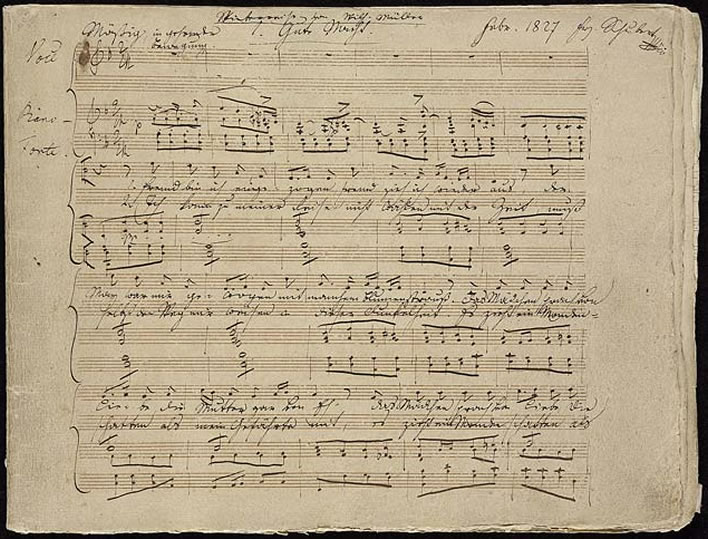 Winterreise von Wilh. Müller
Mäßig, in gehender Bewegung. 1. Gute Nacht. Febr. 1827 Frz Schubert
Voce
Piano-
forte.
1. Fremd bin ich einge zogen fremd zieh ich wieder aus der
2. Ich kann zu meiner Reise nicht wählen mit der Zeit muß
May war mir ge= wogen mit manchem Blumenstrauß. Das Mädchen sprach von
selbst den Weg mir weisen in dieser Dunkelheit Es zieht ein Monden=
Lie= be die Mutter gar von Eh, das Mädchen sprach von Liebe die
schatten als mein Gefährte mit, es zieht ein Mondenschatten als